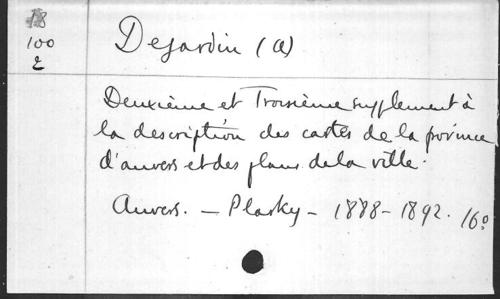 18
100
2
Dejardin (A)
Deuxième et Troisième supplement à
la description des cartes de la province
d'anvers et des plans de la ville.
Anvers. — Plasky — 1888-1892. 16º